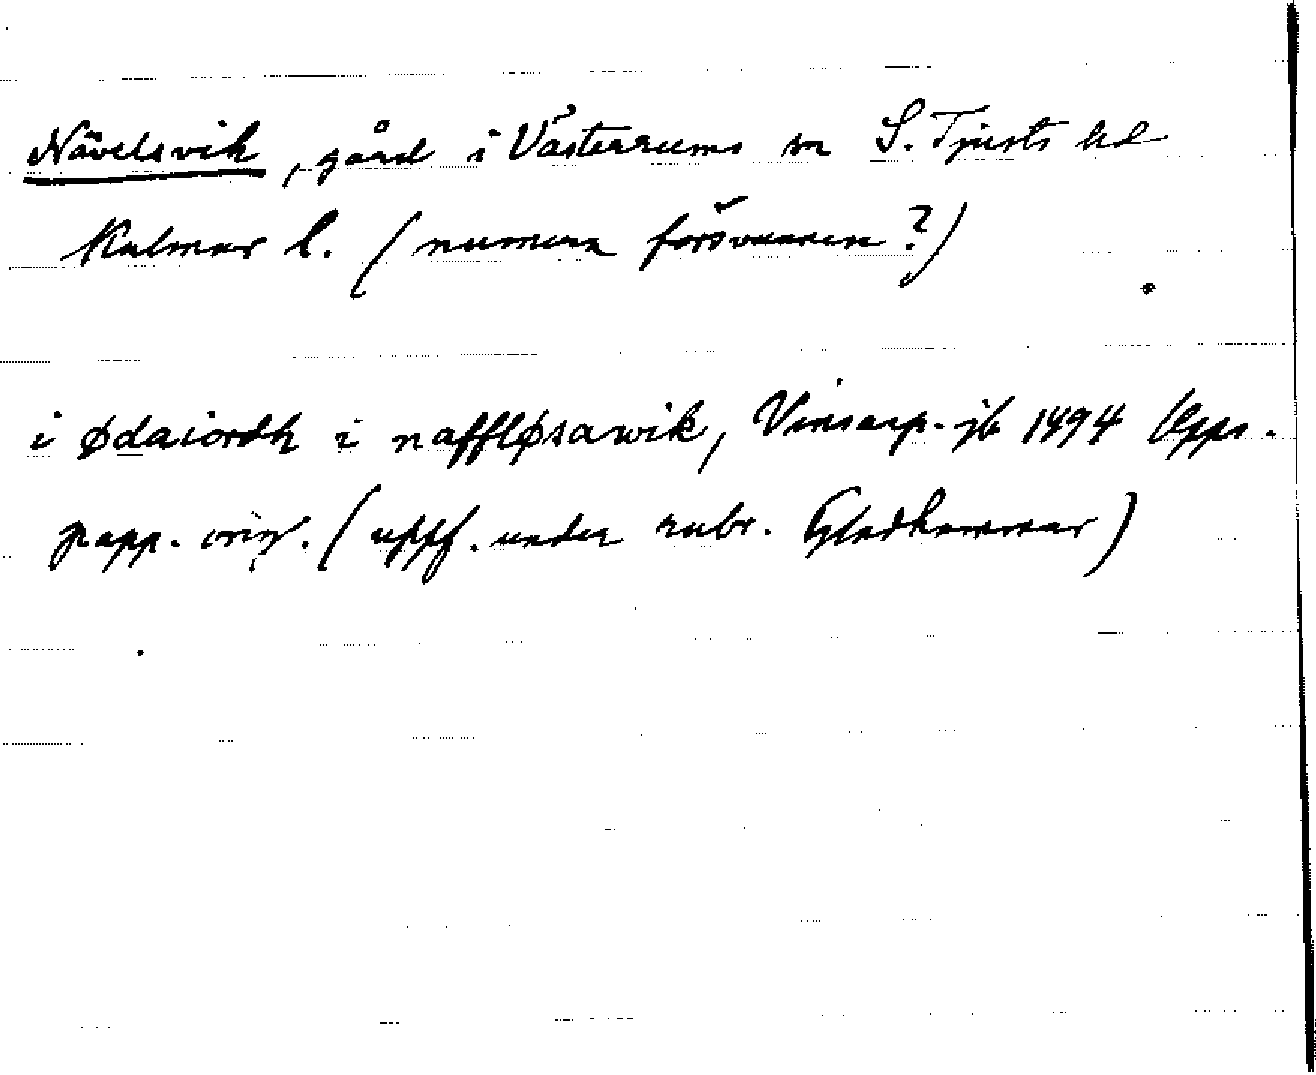 Nävelsvik, gård i Västerrums sn S. Tjusts hd
Kalmar l. (numera försvunnen?)
i ødaiordh i naffløsawik, Vinsarp. jb 1494 Upps.
papp. orig. (uppf. under rubr. Gladhammar)